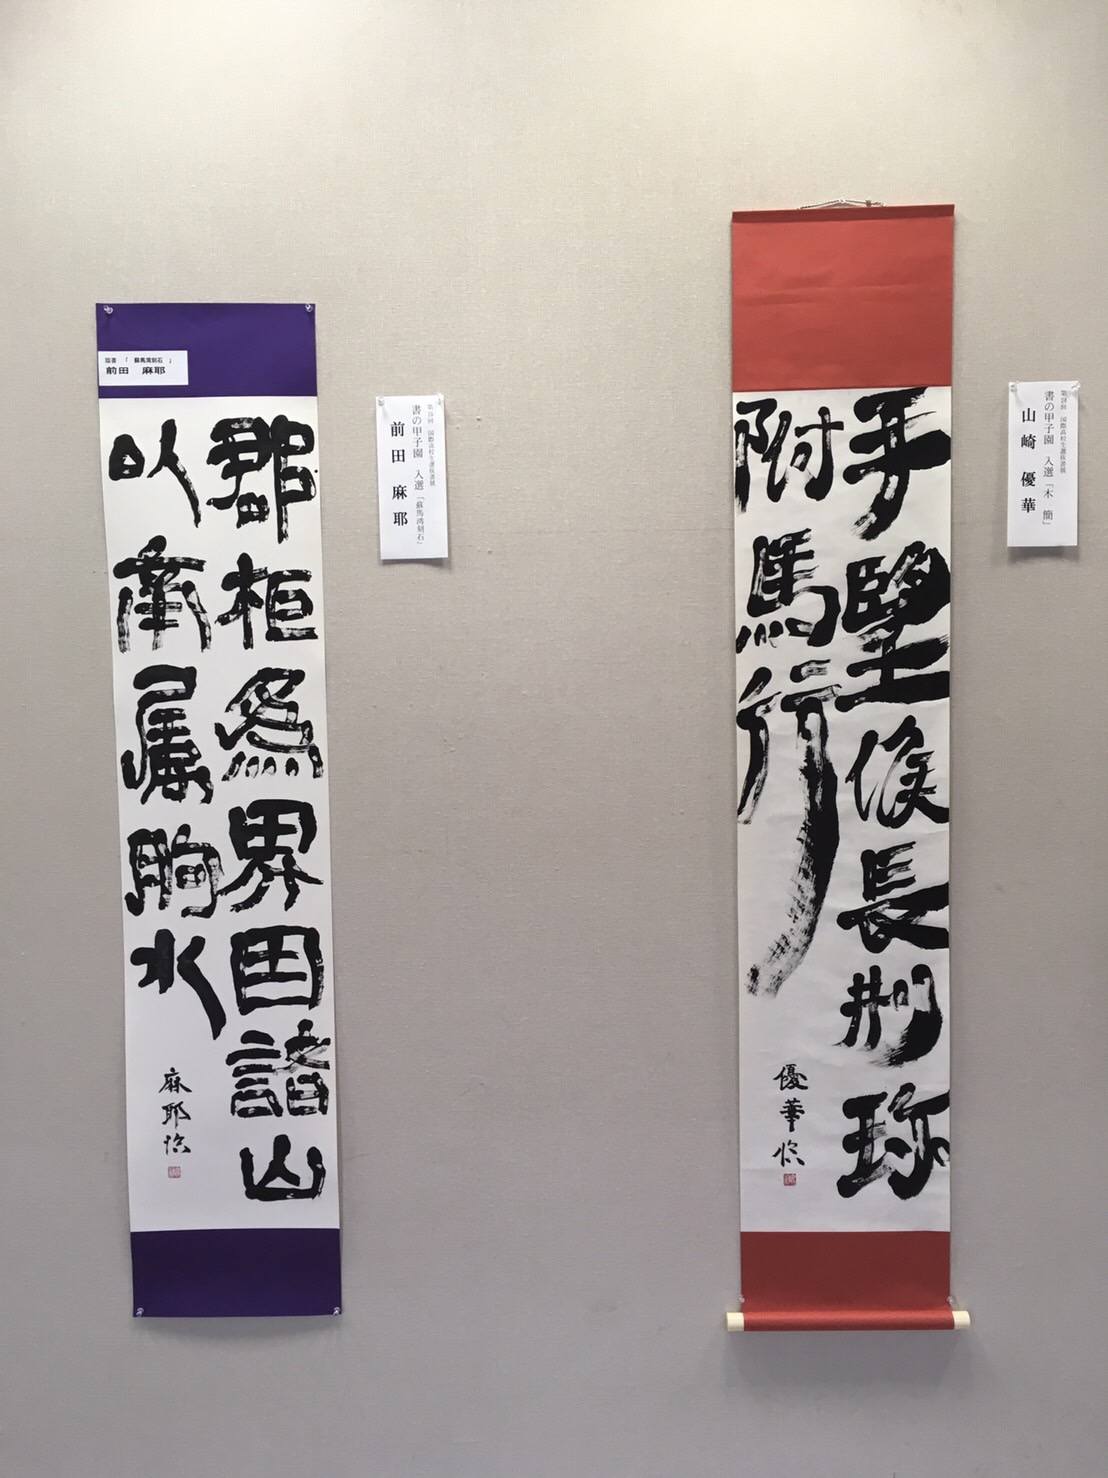 臨書 「 蘇馬湾刻石 」
前田 麻耶
郡柜為界因諸山
以南属朐水
麻耶臨
国際高校生選抜書展
書の甲子園 入選「蘇馬湾刻石」
前田 麻耶
手 候長 珎
附馬行
優華臨
国際高校生選抜書展
書の甲子園 入選「木 簡」
山崎 優華